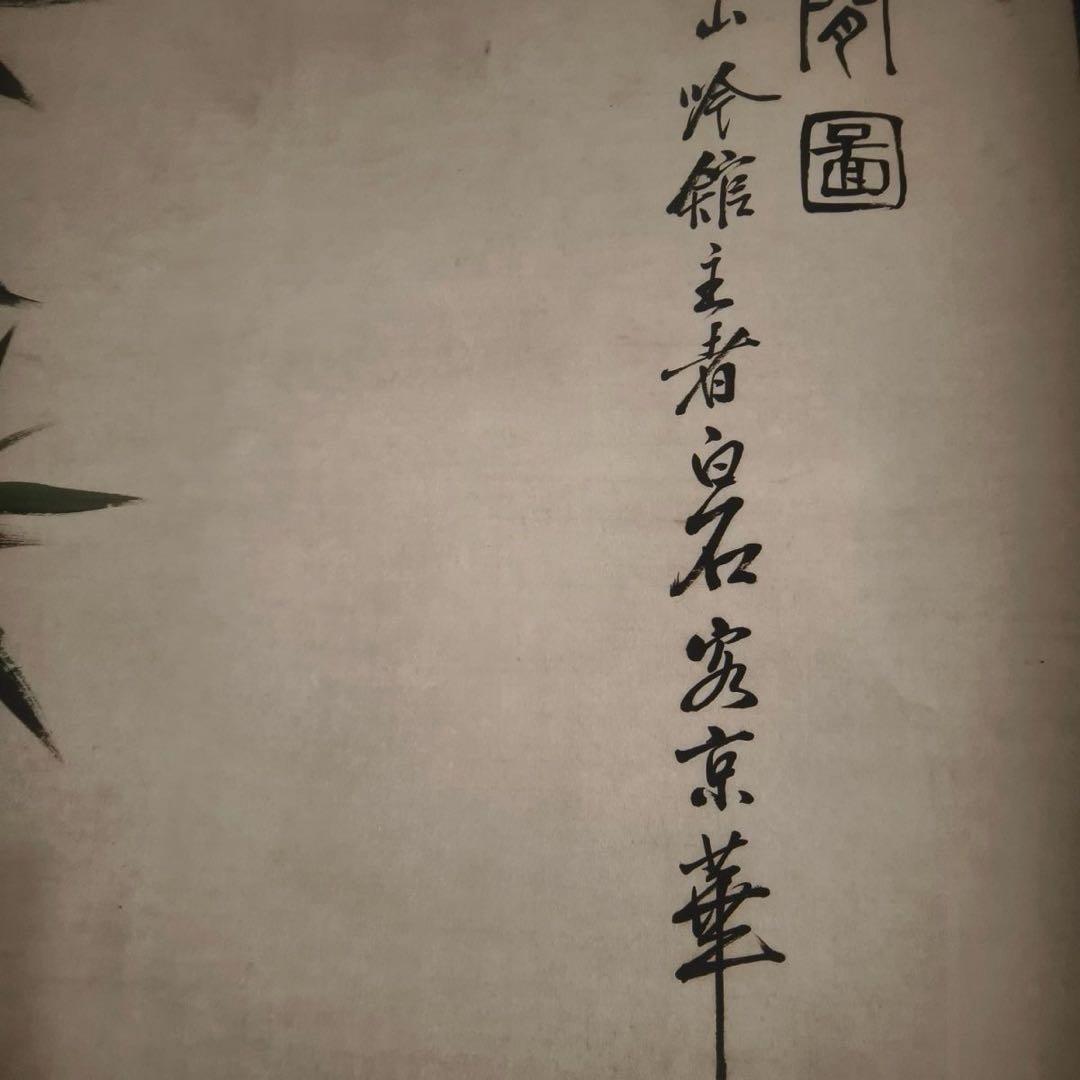 閒圖
山吟館主者白石客京華